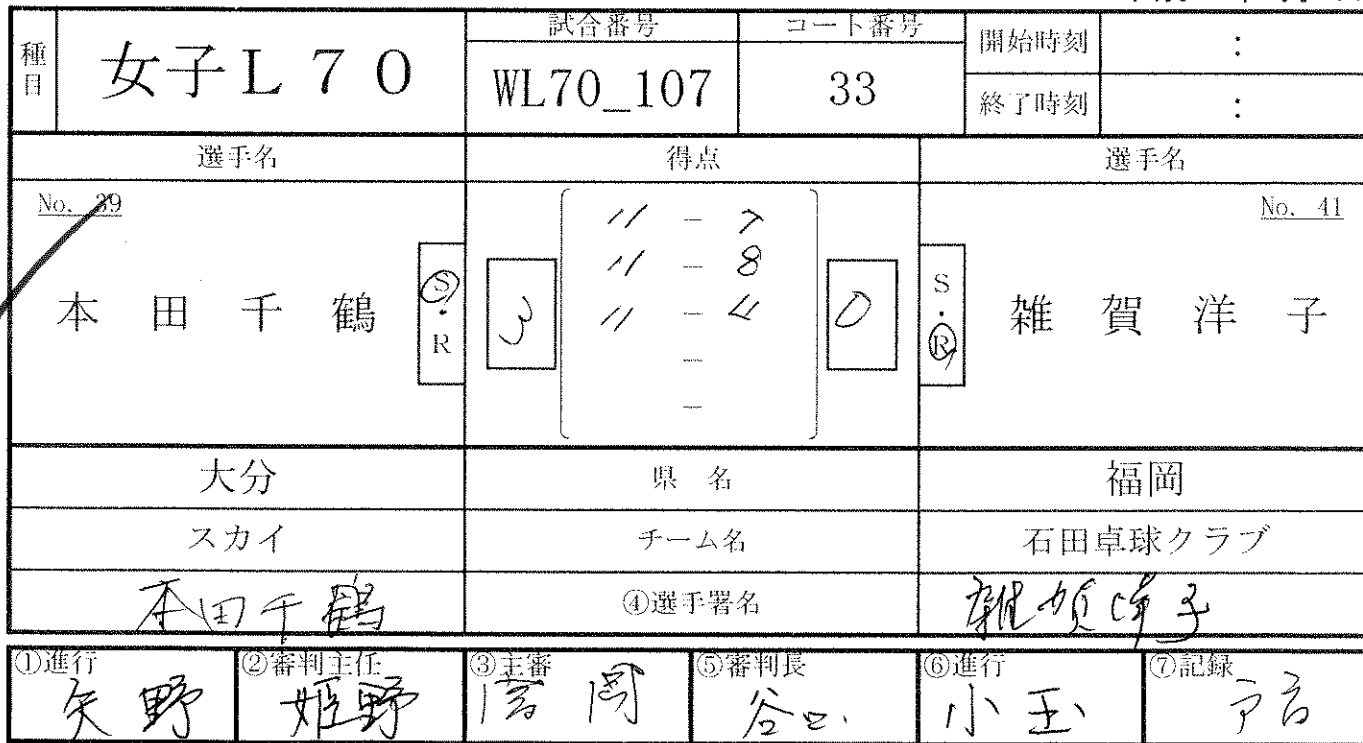 種目
女子L70
試合番号
WL70_107
コート番号
33
開始時刻 :
終了時刻 :
選手名
得点
選手名
No. 39
本田千鶴
S・R
3
11 - 7
11 - 8
11 - 4
-
-
0
S・R
No. 41
雑賀洋子
大分
県名
福岡
スカイ
チーム名
石田卓球クラブ
本田千鶴
④選手署名
雑賀洋子
①進行
矢野
②審判主任
姫野
③主審
⑤審判長
谷口
⑥進行
小玉
⑦記録